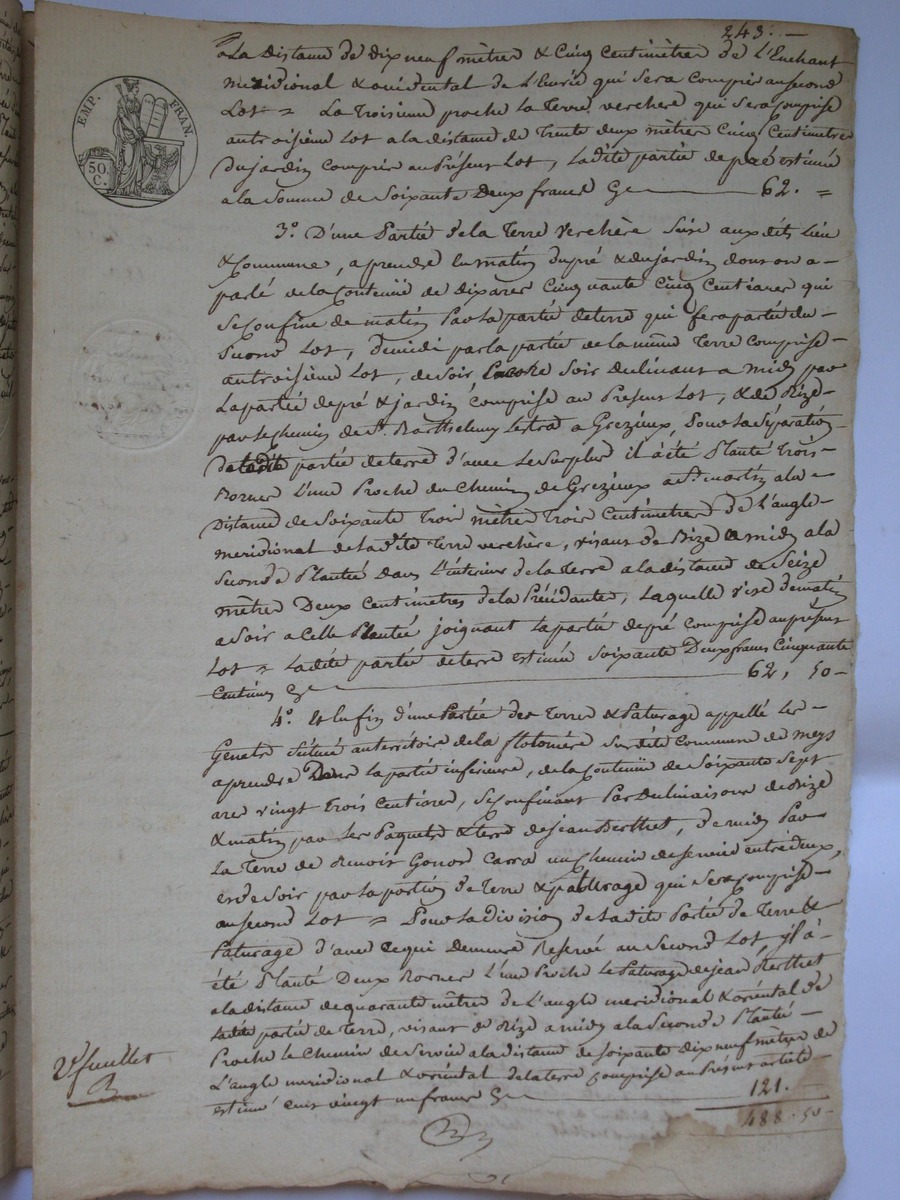 243. —
a La Distance de dix neuf mètres & Cinq Centimètres de L'Enchant
meridional & occidental de L'Eurie qui sera comprise au second
Lot = La Troisieme proche la Terre verchere qui sera comprise
au troisième Lot a la distance de Trente deux mètres Cinq Centimetres
du jardin compris au Présent Lot, Ladite partie de pré estimée
a la Somme de Soixante Deux francs 62. =
EMP. FRAN.
50. C.
3.° D'une Partie de la Terre Verchère Sise auxdits Lieu
& Commune, a prendre en matin du pré & du jardin dont on a
parlé de la Contenüe de dix ares Cinquante Cinq Centiares qui
Se Confine de matin Par la partie de terre qui fera partie du
Second Lot, de midi par la partie de la même Terre comprise
au troisième Lot, de Soir Encore Soir declinant a midy par
La partie de pré & jardin comprise au Présent Lot, & de Bize
par le Chemin de St. Barthelemy Lestra a Grezieux, Pour la Séparation
de ladite partie de terre d'avec le Surplus il à été Planté Trois
Bornes L'une Proche du Chemin de Grezieux a St. martin a la
Distance de Soixante Trois mètres Trois Centimètres de L'angle
meridional de ladite Terre verchère, visant de Bize a midy a la
Seconde Plantée Dans L'intérieur de la Terre a la distance de Seize
mètres Deux Centimètres de la Précédante, Laquelle vise de matin
a Soir a Celle Plantée joignant la partie de pré comprise au présent
Lot = Ladite partie de terre estimée Soixante Deux francs Cinquante
Centimes 62, 50 —
4.° Et Enfin d'une Partie de Terre & Paturage appellé Les
Genets Situué au territoire de la flotonière Susdite Commune de Meys
a prendre Dans la partie inférieure, de la Contenüe de Soixante Sept
ares vingt Trois Centiares, Se Confinant Par Declinaison de Bize
& matin par Les Paquets & terre de jean Berthet, de midy Par
La Terre de Benoit Gonon Carra un Chemin de Service entre deux,
et de Soir par la portion de Terre & paturage qui Sera Comprise
au second Lot = Pour la division de ladite Partie de Terre &
Paturage d'avec ce qui Demeure Reservé au Second Lot, il à
été Planté Deux Bornes L'une Proche Le Paturage de jean Berthet
a la distance de quarante mètres de L'angle meridional & oriental de
ladite partie de Terre, visant de Bize a midy a la Seconde Plantée
Proche le Chemin de Service a la distance de soixante dix neuf mètres de
L'angle meridional & oriental de la terre comprise au Présent article
estimé cent vingt un francs 121.
488.50 —
2e feuillet